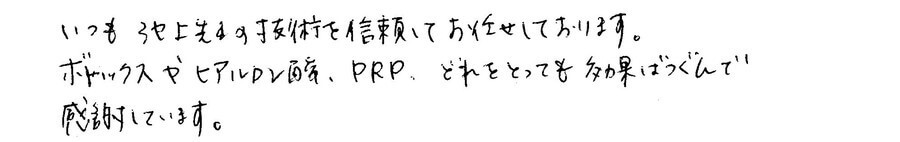 いつも 池上先生の技術を信頼してお任せしております。
ボトックスや ヒアルロン酸、PRP、どれをとっても 効果ばつぐんで
感謝しています。